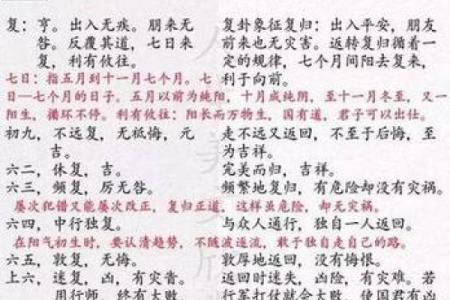 复：亨。出入无疾。朋来无
咎。反覆其道，七日来
复，利有攸往。
复卦象征复归：出入平安，朋友
前来也无灾害。返转复归循着一
定的规律，七个月间阳去复来，
利于向前。
七日：指五月到十一月七个月。七
日—七个月的日子。五月以前为纯阳，十月成纯阴，至十一月冬至，又一
阳生，循环不停。利有攸往：阳长而万物生，国有道，君子可以出仕。
初九，不远复，无祗悔，元
吉。
走不远又返回，不至于后悔，至
为吉祥。
六二，休复，吉。
完美而归，吉祥。
六三，频复，厉无咎。
频繁地复归，有危险却没有灾祸。
屡次犯错又能屡次改正，复归正道，这样虽危险，却无灾祸。
六四，中行独复。
与众人通行，独自一人返回。
在阳气初生时，要认清趋势，不随波逐流，敢于独自走自己的路。
六五，敦复，无悔。
敦厚地返回，没有悔恨。
上六，迷复，凶，有灾眚。
用行师，终有大败
返回时迷失，凶险，有灾难。若
行军打仗就会大败，使国君有凶